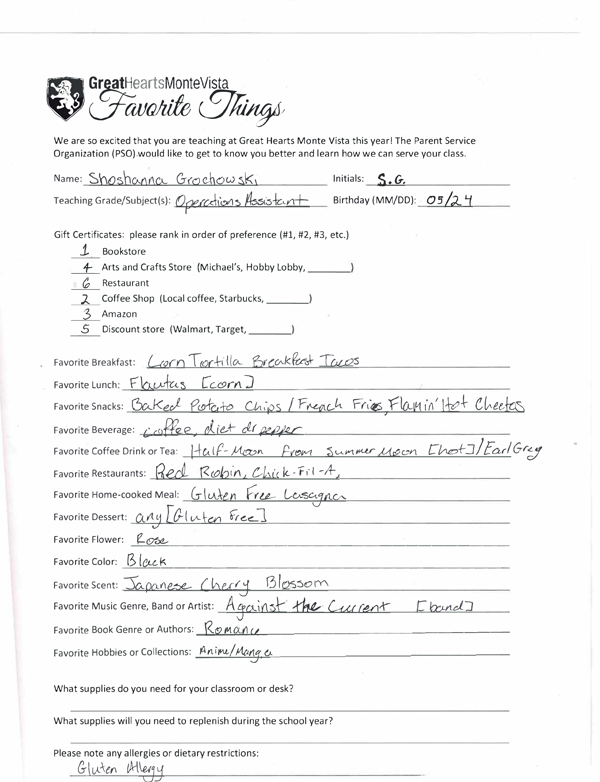 GreatHeartsMonteVista
Favorite Things
We are so excited that you are teaching at Great Hearts Monte Vista this year! The Parent Service
Organization (PSO) would like to get to know you better and learn how we can serve your class.
Name: Shoshanna Grochowski Initials: S.G.
Teaching Grade/Subject(s): Operations Assistant Birthday (MM/DD): 05/24
Gift Certificates: please rank in order of preference (#1, #2, #3, etc.)
1 Bookstore
4 Arts and Crafts Store (Michael's, Hobby Lobby, ________)
6 Restaurant
2 Coffee Shop (Local coffee, Starbucks, ________)
3 Amazon
5 Discount store (Walmart, Target, ________)
Favorite Breakfast: Corn Tortilla Breakfast Tacos
Favorite Lunch: Flautas [corn]
Favorite Snacks: Baked Potato Chips / French Fries, Flamin' Hot Cheetos
Favorite Beverage: coffee, diet dr pepper
Favorite Coffee Drink or Tea: Half-Moon from Summer Moon [hot] / Earl Grey
Favorite Restaurants: Red Robin, Chick-Fil-A,
Favorite Home-cooked Meal: Gluten Free Lasagna
Favorite Dessert: any [Gluten Free]
Favorite Flower: Rose
Favorite Color: Black
Favorite Scent: Japanese Cherry Blossom
Favorite Music Genre, Band or Artist: Against the Current [band]
Favorite Book Genre or Authors: Romance
Favorite Hobbies or Collections: Anime/Manga
What supplies do you need for your classroom or desk?
What supplies will you need to replenish during the school year?
Please note any allergies or dietary restrictions:
Gluten Allergy